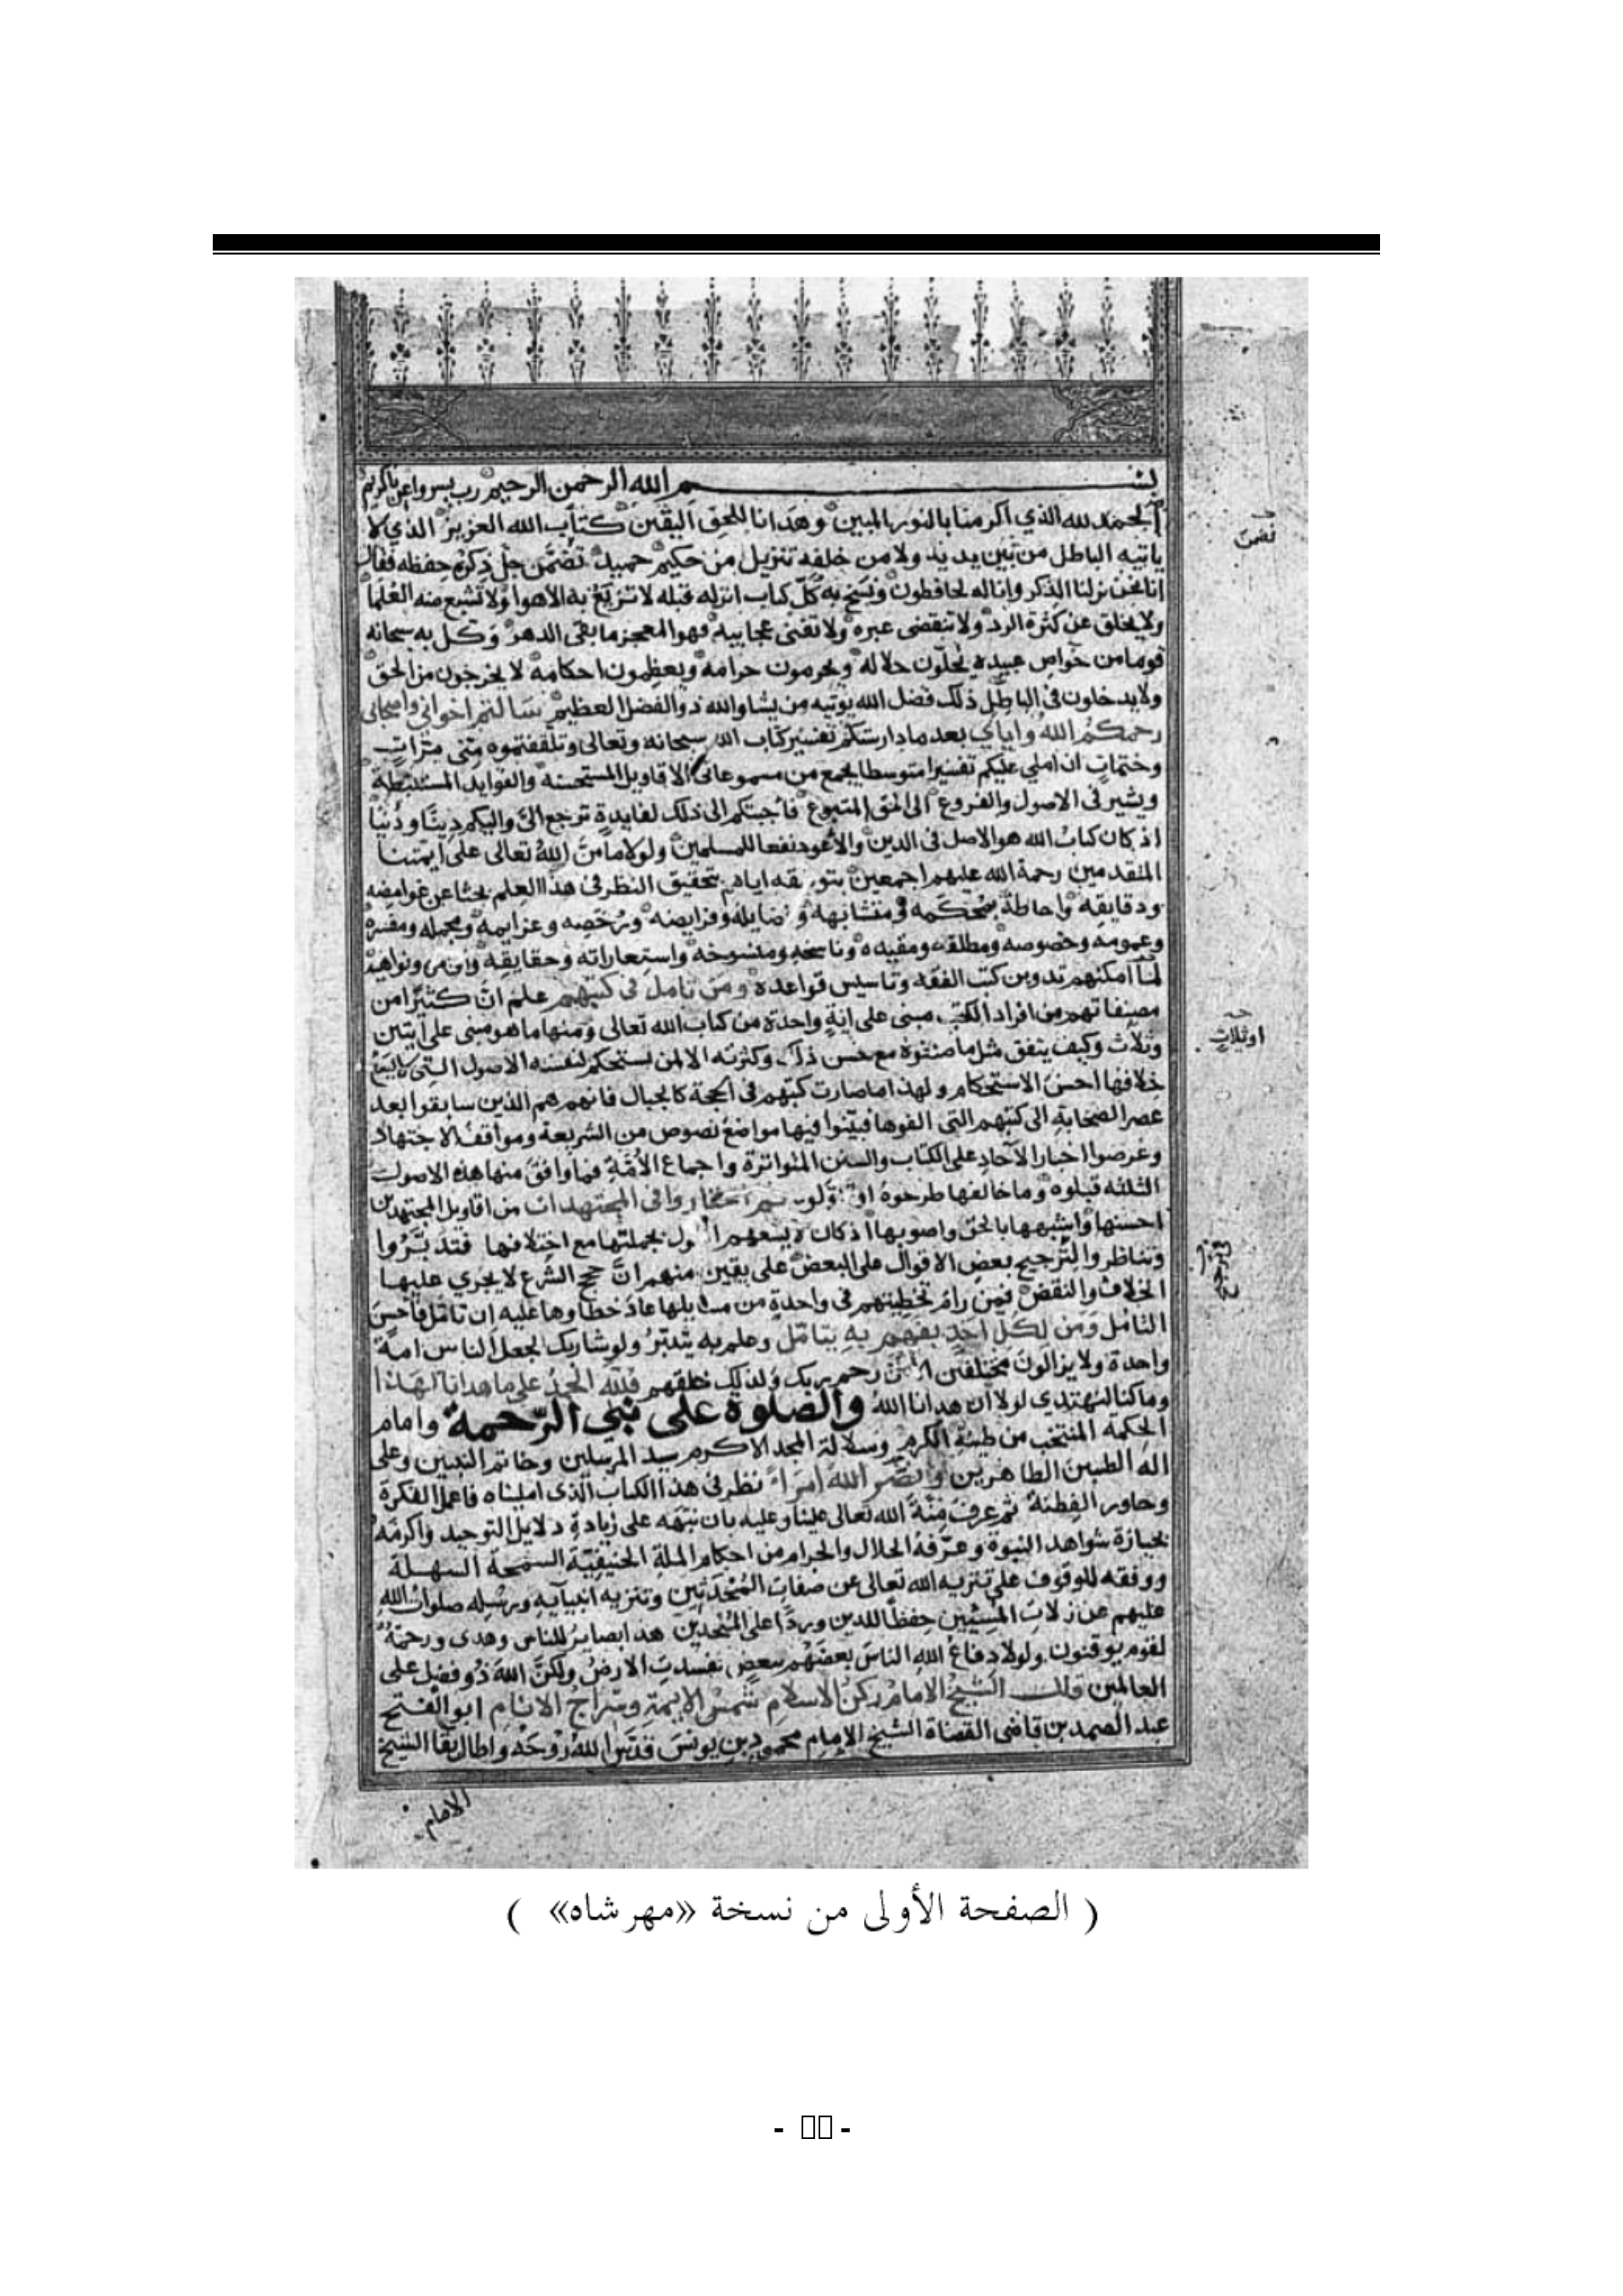 بسم الله الرحمن الرحيم رب يسر واعن يا كريم
الحمد لله الذي اكرمنا بالنور المبين وهدانا للحق اليقين كتاب الله العزيز الذي لا
ياتيه الباطل من بين يديه ولا من خلفه تنزيل من حكيم حميد تضمن جل ذكره حفظه فقال
نضمن
انا نحن نزلنا الذكر وانا له لحافظون ونسخ به كل كتاب انزله قبله لا تزيغ به الاهوا ولا تشبع منه العلما
ولا يخلق عن كثرة الرد ولا تنقضي عبره ولا تفنى عجايبه فهو المعجز ما بقي الدهر وكل به سبحانه
قوما من خواص عبيده يحلون حلاله ويحرمون حرامه ويعظمون احكامه لا يخرجون من الحق
ولا يدخلون في الباطل ذلك فضل الله يوتيه من يشا والله ذو الفضل العظيم سالتم اخواني واصحابي
رحمكم الله واياي بعد ما دارستكم تفسير كتاب الله سبحانه وتعالى وتلقفتموه مني مرات
وختمات ان املي عليكم تفسيرا متوسطا يجمع من مسموعاتي الاقاويل المستحسنة والفوايد المستنبطة
ويشير في الاصول والفروع الى الحق المتبوع فاجبتكم الى ذلك لفايدة ترجع الي واليكم دينا ودنيا
اذ كان كتاب الله هو الاصل في الدين والاعود نفعا للمسلمين ولولا ما من الله تعالى على ايمتنا
المتقدمين رحمة الله عليهم اجمعين بتوفيقه اياهم بتحقيق النظر في هذا العلم بحثا عن غوامضه
ودقايقه واحاطة بمحكمه ومتشابهه وفضايله وفرايضه ورخصه وعزايمه ومجمله ومفسره
وعمومه وخصوصه ومطلقه ومقيده وناسخه ومنسوخه واستعاراته وحقايقه واوامره ونواهيه
لما امكنهم تدوين كتب الفقه وتاسيس قواعده ومن تامل في كتبهم علم ان كثيرا من
مصنفاتهم من افراد الكتب مبنى على اية واحدة من كتاب الله تعالى ومنها ما هو مبنى على ايتين
وثلاث وكيف يتفق مثل ما صنفوه مع حسن ذلك وكثرته الا لمن استحكم لنفسه الاصول التي
او ثلاث
خلافها احسن الاستحكام ولهذا ما صارت كتبهم في الحجة كالجبال فانهم هم الذين سابقوا بعد
عصر الصحابة الى كتبهم التي الفوها فبينوا فيها مواضع نصوص من الشريعة ومواقف الاجتهاد
وعرضوا اخبار الآحاد على الكتاب والسنن المتواترة واجماع الامة فما وافق منها هذه الاصول
الثلثة قبلوه وما خالفها طرحوه او اولوه ثم اختاروا في المجتهدات من اقاويل المجتهدين
احسنها واشبهها بالحق واصوبها اذ كان لا يسعهم القول بجملتها مع اختلافها فتدبروا
وتناظروا لترجيح بعض الاقوال على البعض على يقين منهم ان حجج الشرع لا يجري عليها
في ترجيح
الخلاف والنقض فمن رام تخطيتهم في واحدة من مسايلها عاد خطاوها عليه ان تامل فاحسن
التامل ومن لكل احد بفهم به يتامل وعلم به يتدبر ولو شا ربك لجعل الناس امة
واحدة ولا يزالون مختلفين الا من رحم ربك ولذلك خلقهم فلله الحمد على ما هدانا لهذا
وما كنا لنهتدي لولا ان هدانا الله والصلوة على نبي الرحمة وامام
الحكمة المنتخب من طينة الكرم وسلالة المجد الاكرم سيد المرسلين وخاتم النبيين وعلى
اله الطيبين الطاهرين ونضر الله امراء نظر في هذا الكتاب الذي امليناه فاعمل الفكرة
وحاور الفطنة ثم عرف منة الله تعالى علينا وعليه بان نبهه على زيادة دلايل التوحيد واكرمه
بحيازة شواهد النبوة وعرفه الحلال والحرام من احكام الملة الحنيفية السمحة السهلة
ووفقه للوقوف على تنزيه الله تعالى عن صفات المحدثين وتنزيه انبيآيه ورسله صلوات الله
عليهم عن زلات المسيئين حفظا للدين وردا على الملحدين هذا بصاير للناس وهدى ورحمة
لقوم يوقنون ولولا دفاع الله الناس بعضهم ببعض لفسدت الارض ولكن الله ذو فضل على
العالمين قال الشيخ الامام ركن الاسلام شمس الايمة وسراج الانام ابو الفتح
عبد الصمد بن قاضي القضاة الشيخ الامام محمود بن يونس قدس الله روحه واطال بقا الشيخ
الامام
( الصفحة الأولى من نسخة «مهرشاه» )